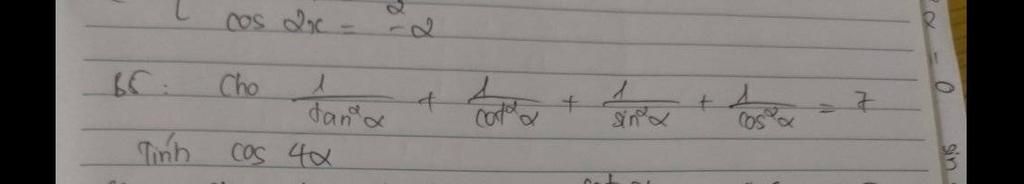 cos 2x = -2
65: Cho 1/tan²α + 1/cot²α + 1/sin²α + 1/cos²α = 7
Tính cos 4α